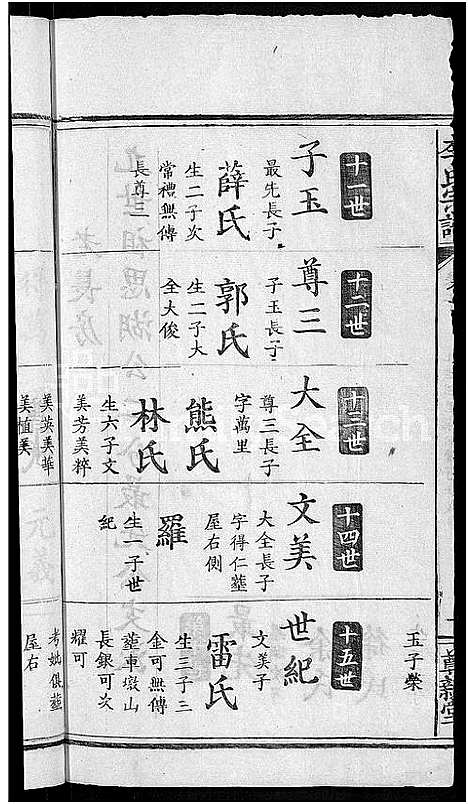 李氏宗譜
玉子榮
十一世
子玉
最先長子
薛氏
生二子次
常禮無傳
長尊三
十二世
尊三
子玉長子
郭氏
生二子大
全大俊
十三世
大全
尊三長子
字萬里
熊氏
林氏
生六子文
美芳美粹
美英美華
美植美
十四世
文美
大全長子
字得仁葬
屋右側
羅
生一子世
紀
十五世
世紀
文美子
雷氏
生三子三
金可無傳
葬車墩山
長銀可次
耀可
考妣俱葬
屋右